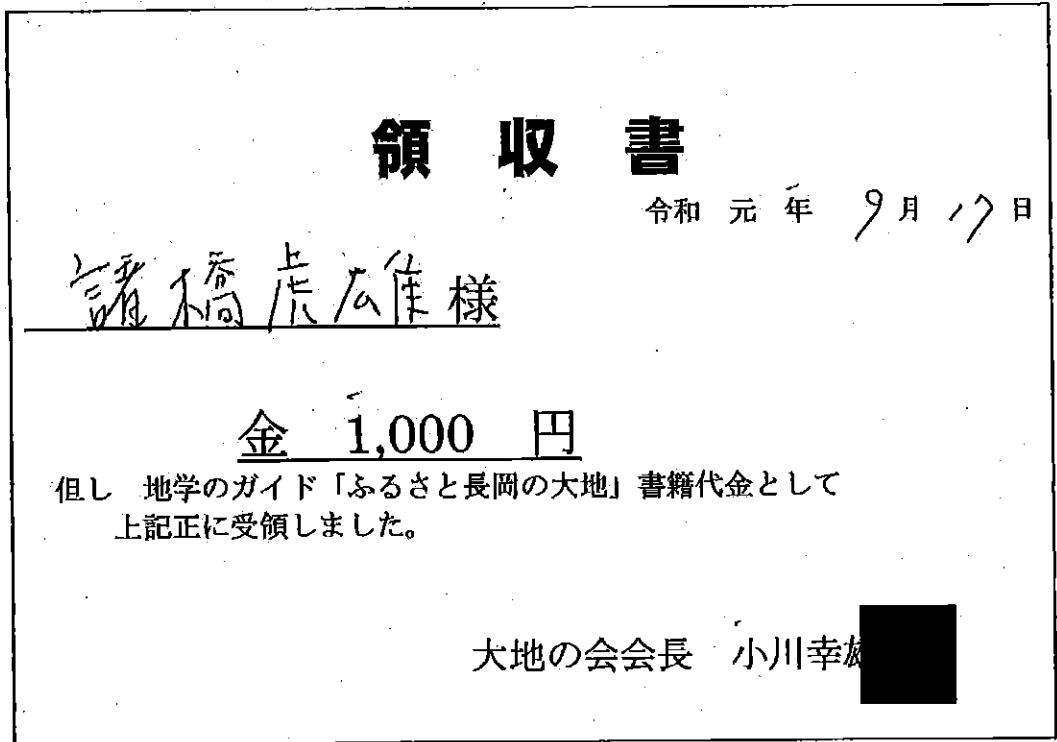 領収書
令和 元 年 9月 17日
諸橋虎雄様
金 1,000 円
但し 地学のガイド「ふるさと長岡の大地」書籍代金として
上記正に受領しました。
大地の会会長 小川幸雄